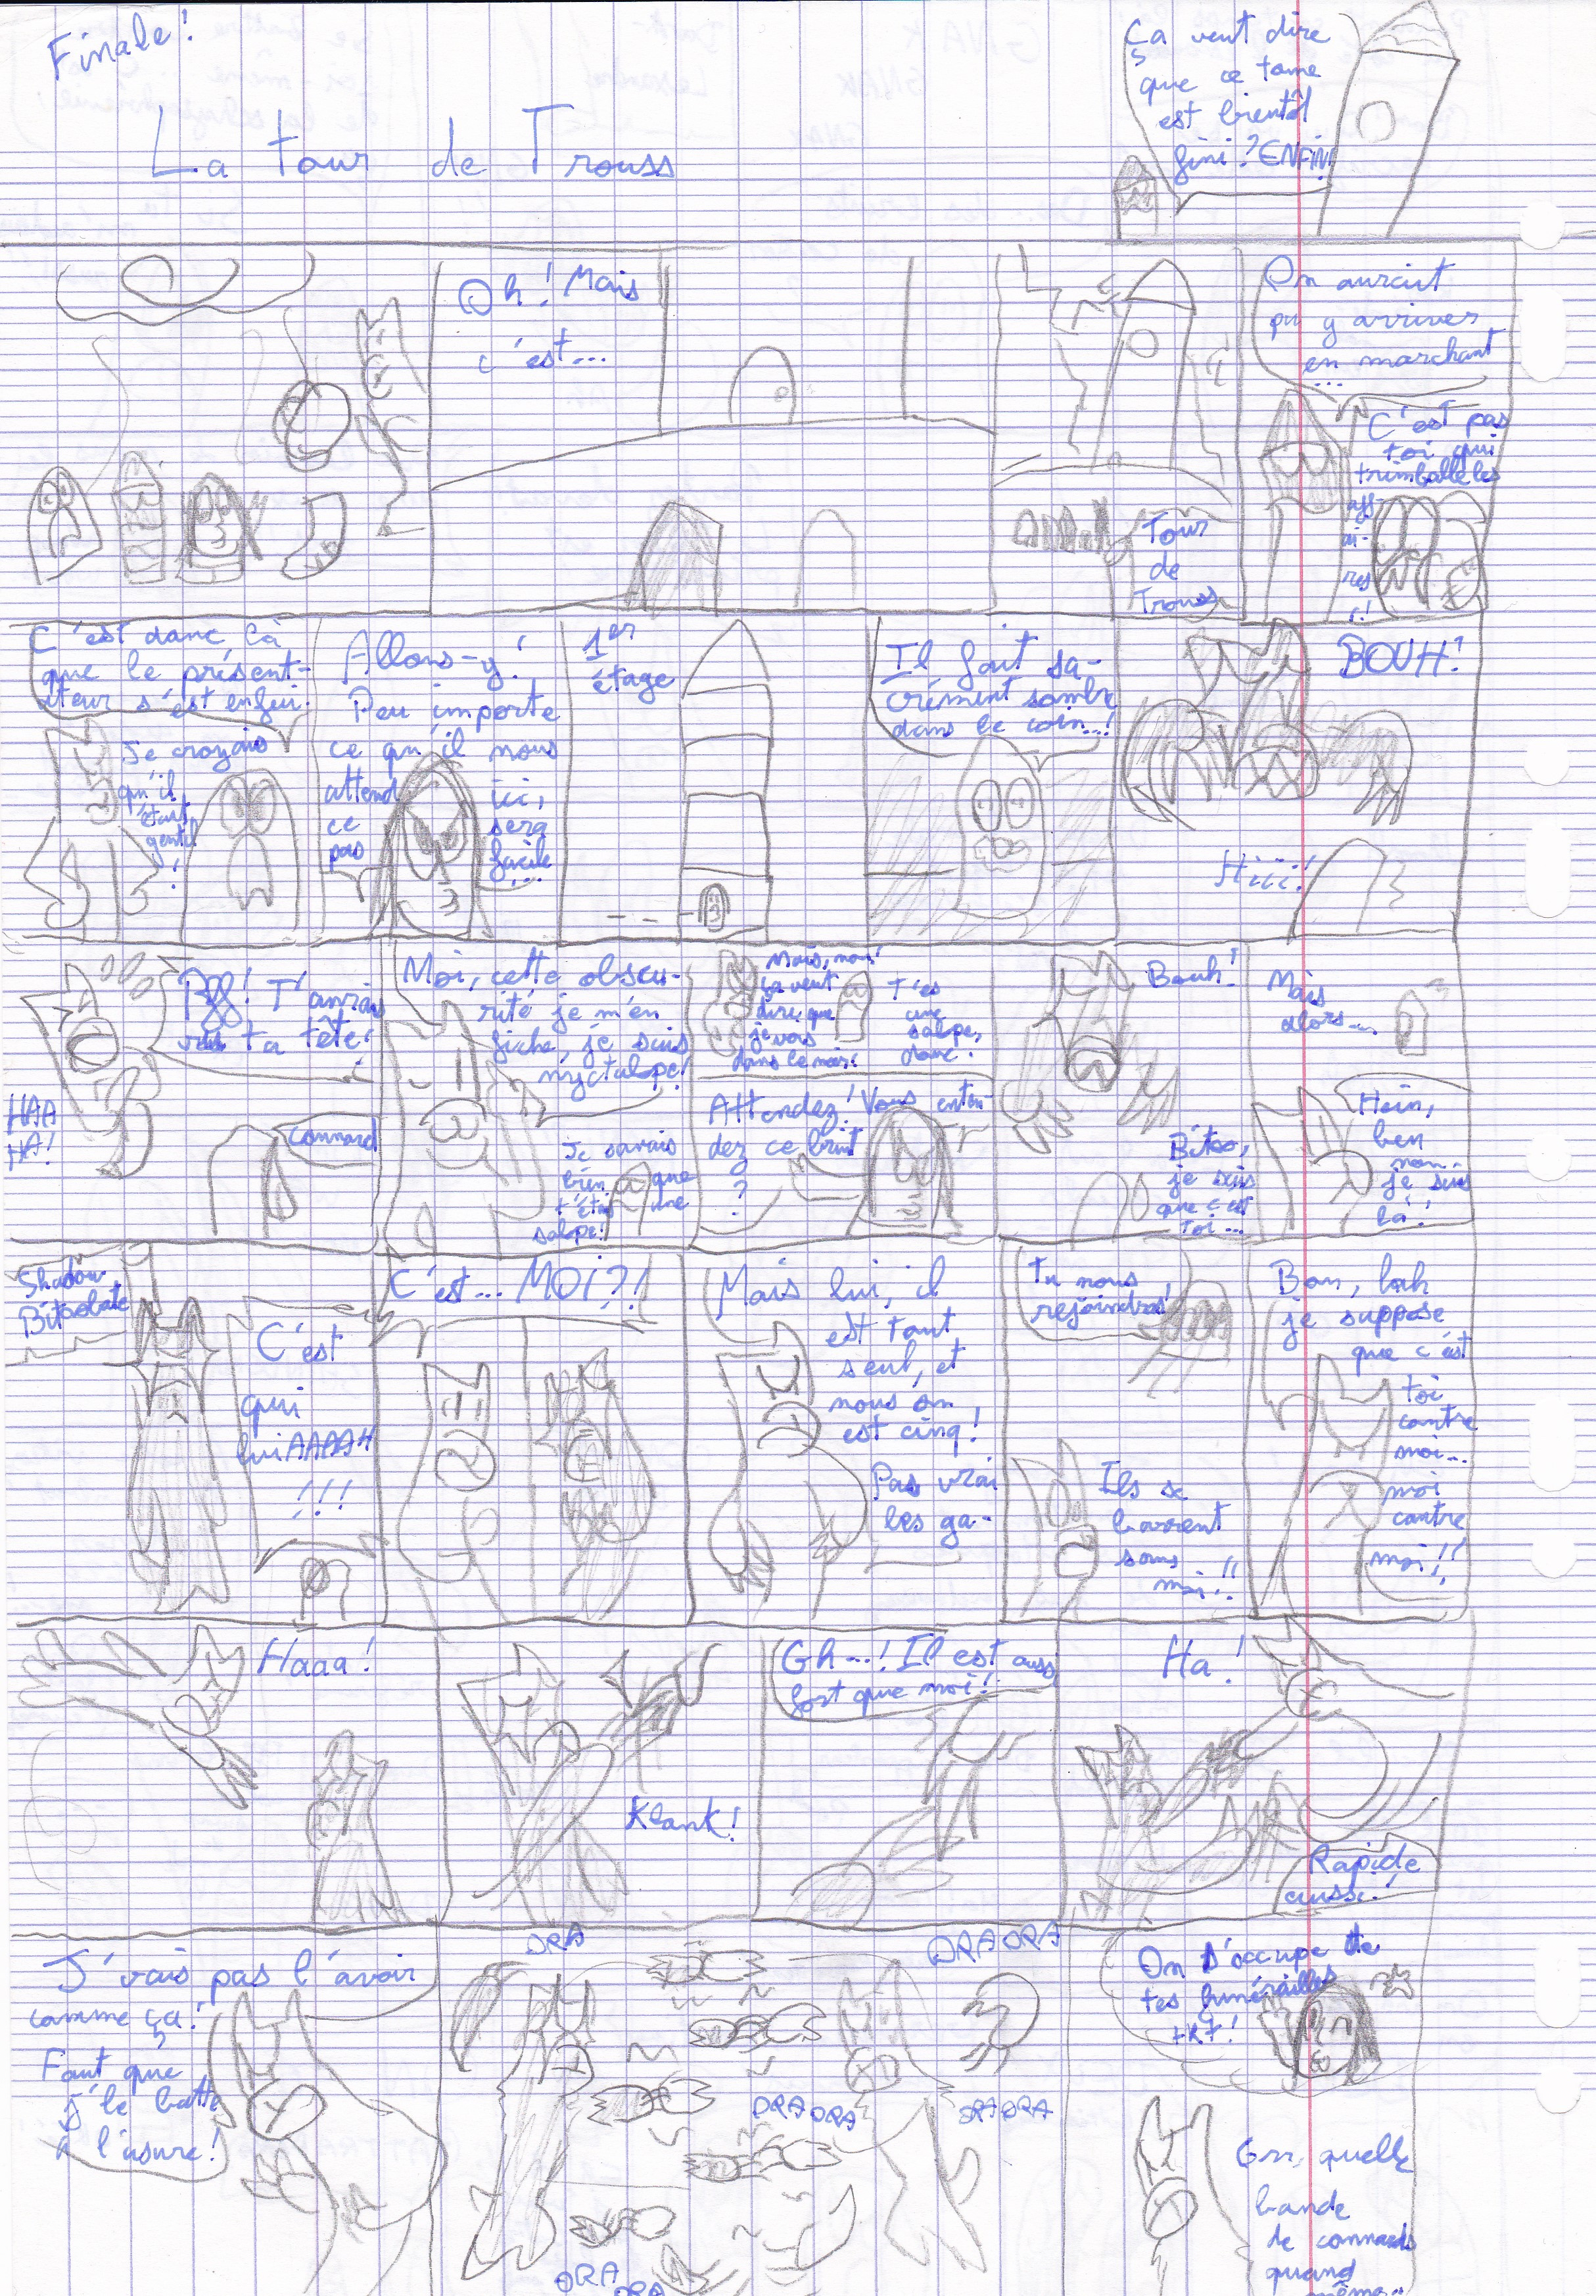 Finale!
La tour de Trouss
Ça veut dire
que ce tome
est bientôt
fini? ENFIN!
Oh! Mais
c'est...
Tour
de
Trouss
On aurait
pu y arriver
en marchant
...
C'est pas
toi qui
trimballe les
aff-
ai-
res
!
C'est donc là
que le présent-
ateur s'est enfui.
Je croyais
qu'il
était
gentil
!
Allons-y!
Peu importe
ce qu'il nous
attend ici,
ce sera
pas facile
...
1er
étage
Il fait sa-
crément sombre
dans le coin...!
BOUH!
Hiii!
T'aurais
vu ta tête!
HAA
HA!
connard
Moi, cette obscu-
rité je m'en
fiche, je suis
nyctalope!
Je savais
bien que
t'étais une
salope!
Mais, non!
ça veut
dire que
je vois
dans le noir!
T'es
une
salope,
donc!
Attendez! Vous enten-
dez ce bruit
?
Bouh!
Bitso,
je sais
que c'est
toi...
Mais
alors...
Hein,
ben
non
je suis
là!
Shadow
C'est
qui
lui AAAAH
!!!
C'est... MOI?!
Mais lui, il
est tout
seul, et
nous on
est cinq!
Pas vrai
les ga-
Tu nous
rejoindras!
Ils se
barrent
sans
moi!!
Bon, bah
je suppose
que c'est
toi
contre
moi...
moi
contre
moi!!
Haaa!
Klank!
Gh...! Il est aussi
fort que moi!
Ha!
Rapide
aussi!
J'vais pas l'avoir
comme ça!
Faut que
j'le batte
à l'usure!
ORA
ORA ORA
ORA ORA
ORA ORA
ORA
ORA
On s'occupe de
tes funérailles
tkt!
Grr, quelle
bande
de connards
quand
même...